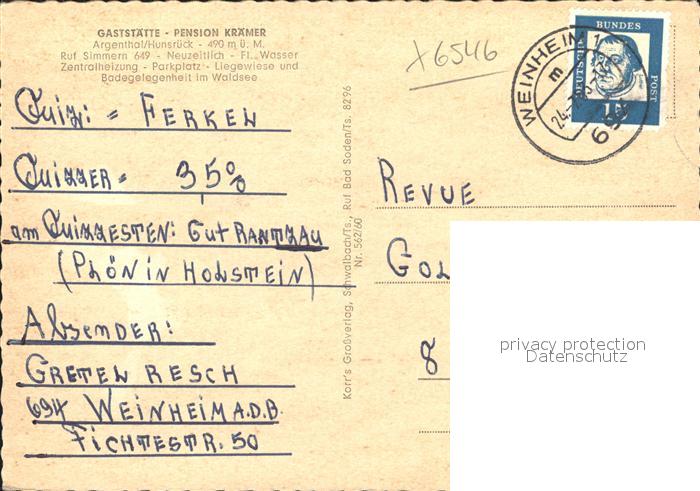 GASTSTÄTTE - PENSION KRÄMER
Argenthal/Hunsrück - 490 m ü. M.
Ruf Simmern 649 - Neuzeitlich - Fl. Wasser
Zentralheizung - Parkplatz - Liegewiese und
Badegelegenheit im Waldsee
X6546
WEINHEIM 1
m
694
DEUTSCHE BUNDES POST
15
Quiz: = FERKEL
Quizzer = 35%
am Quizzesten: Gut RANTZAU
(PLÖN IN HOLSTEIN)
Absender:
GRETEL RESCH
694 WEINHEIM A.D.B.
FICHTESTR. 50
Korr's Großverlag, Schwalbach/Ts., Ruf Bad Soden/Ts. 8296
Nr. 562/60
REVUE
GOL
8
privacy protection
Datenschutz